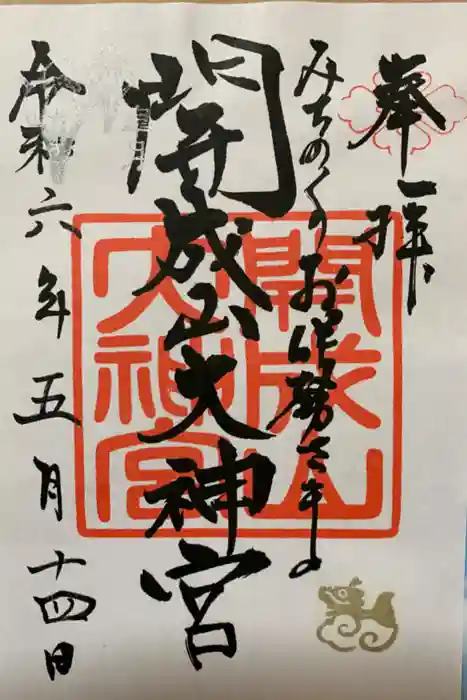 奉拝
みちのくのお伊勢さま
開成山大神宮
令和六年五月十四日
開成山
大神宮